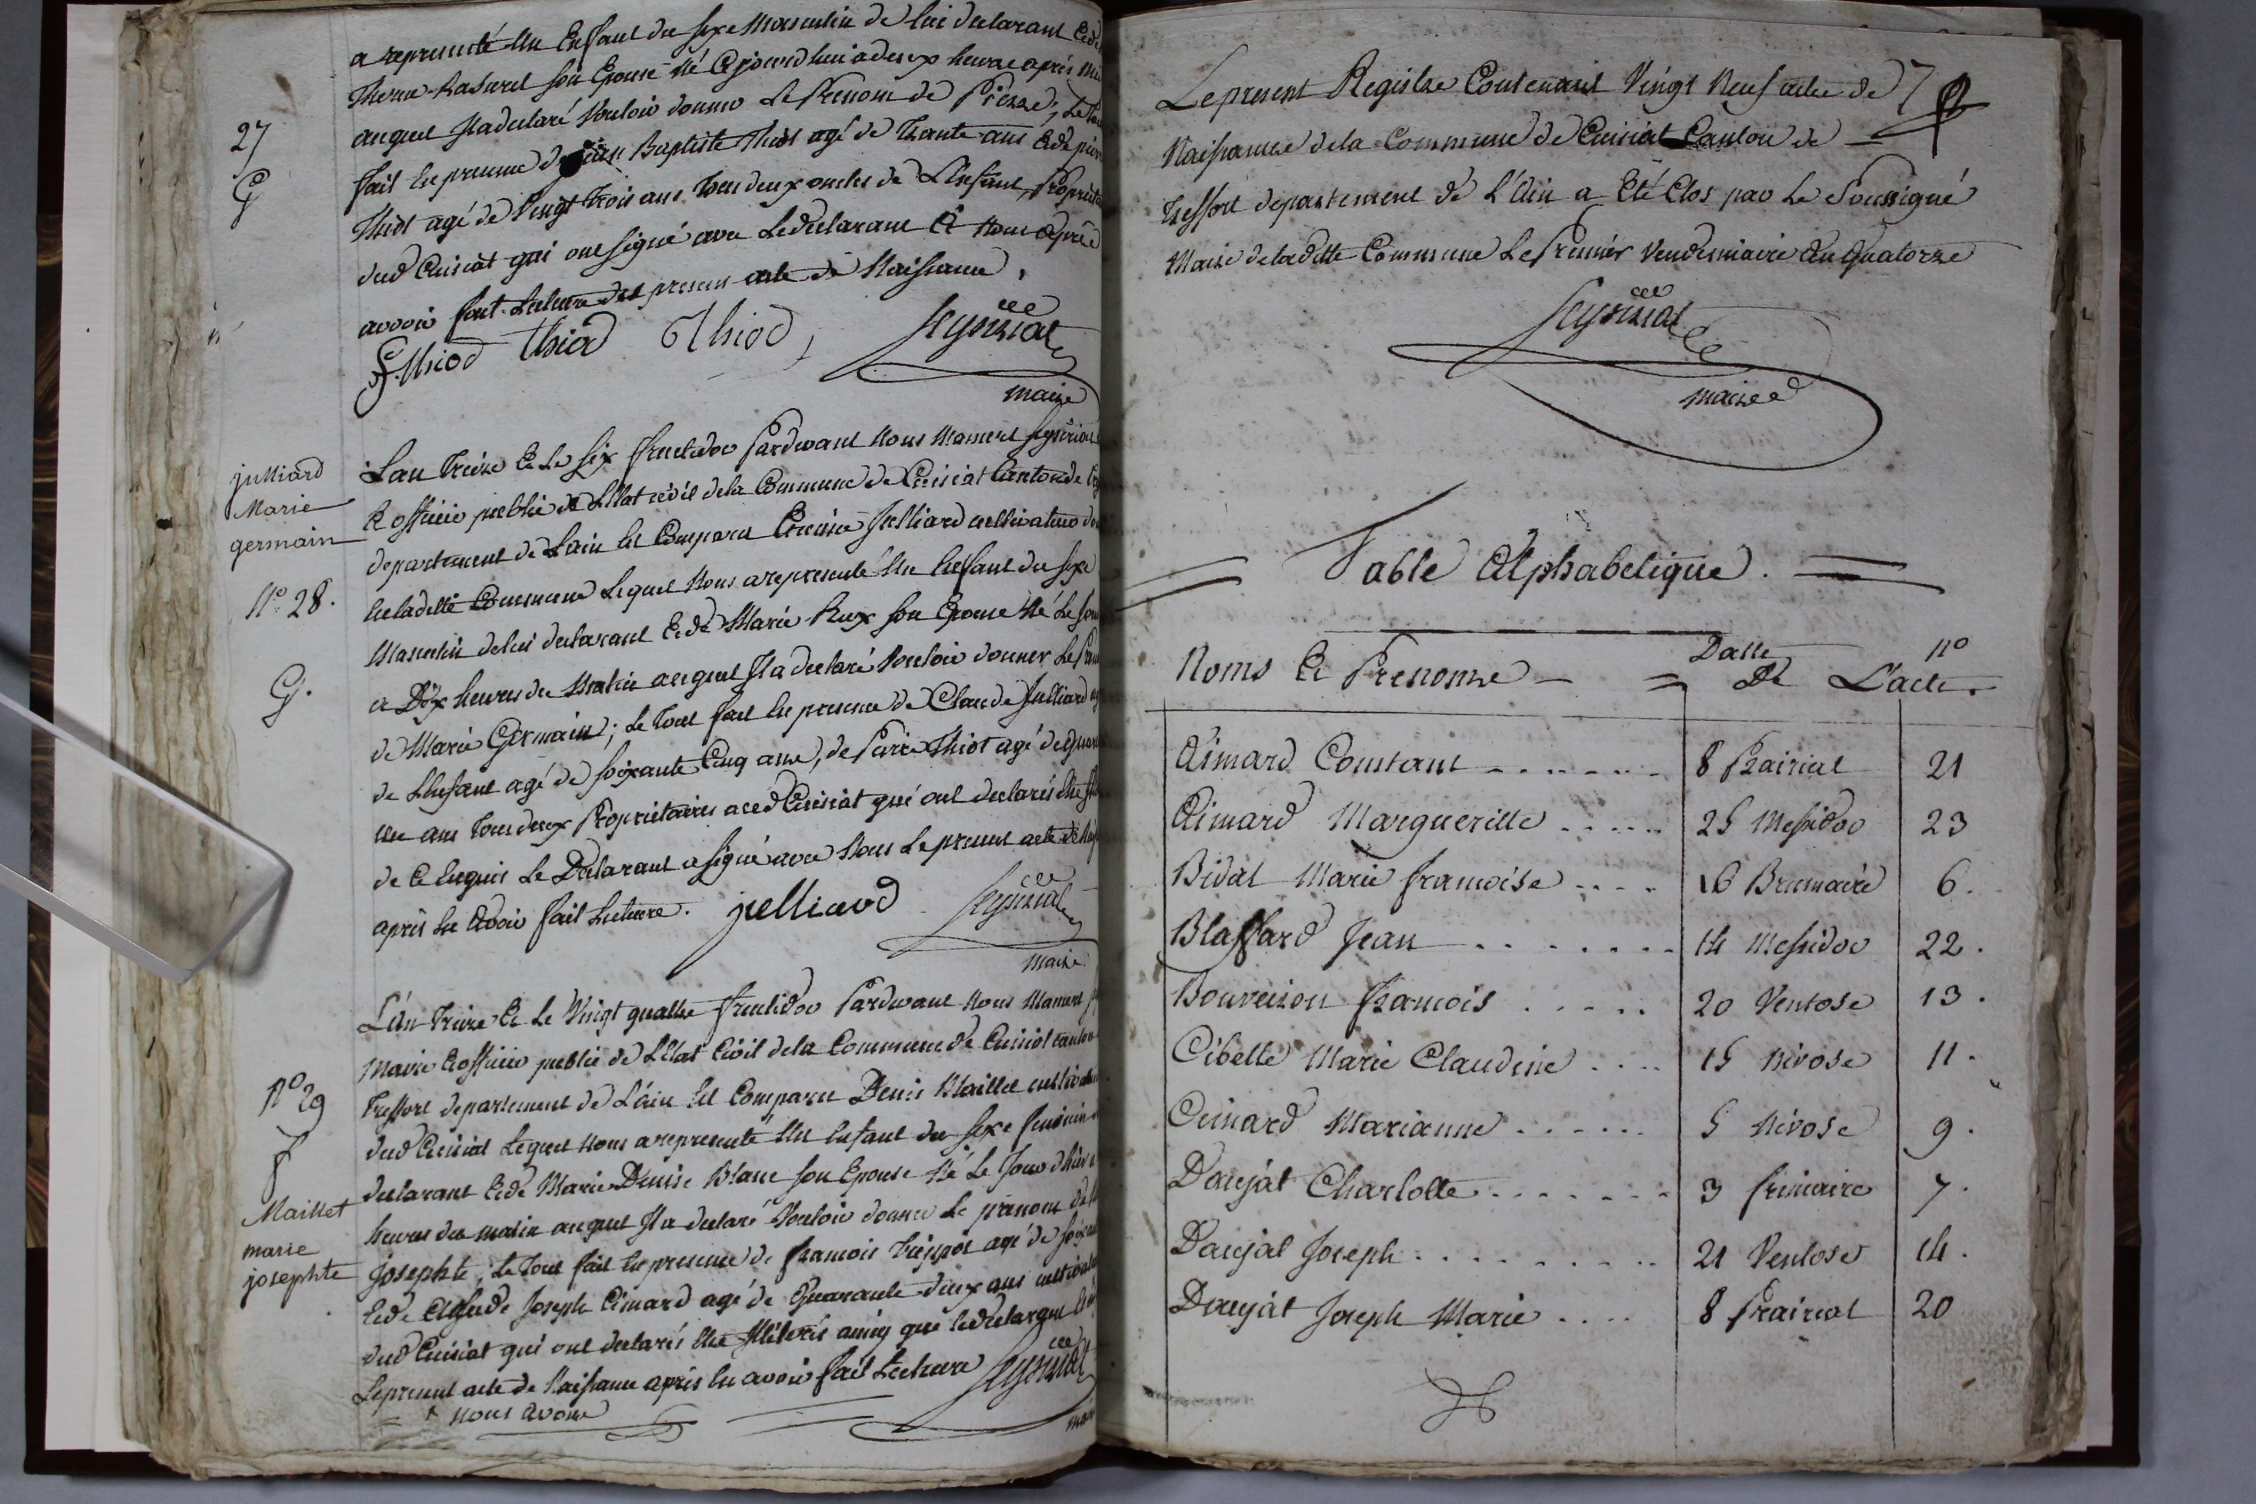 a représenté Un Enfant du sexe Masculin de lui declarant Et de
son Epouse Né aujourd'hui a deux heures après
auquel Il a declaré Vouloir donner Le Prenom de Pierre; Le tout
27
fait En presence de jean Baptiste Thiot agé de Trante ans Et de pierre
G
Thiot agé de Vingt Trois ans Tous deux oncles de L'Enfant,
dud Cuisiat qui ont signé avec Le declarant Et Nous après
avoir fait Lecture du present acte de Naissance.
thiod thiod Thiod Seyssiat
maire
julliard
Marie
germain
L'an Treize Et le six fructidor Pardevant Nous Mamert Seyssiat
Et officier public de L'Etat civil de la Commune de Cuisiat Canton de
departement de L'ain Est Comparu Etienne Julliard cultivateur
N° 28.
En ladette Commune Lequel Nous a representé Un Enfant du sexe
Masculin de lui declarant Et de Marie Rux son Epouse Né Le
G.
a Dix heures du Matin auquel Il a declaré Vouloir donner Le
de Marie Germain; Le Tout fait En presence de Claude Julliard
de L'Enfant agé de soixante Cinq ans, de Pierre Thiot agé de
un ans Tous deux Proprietaires aud Cuisiat qui ont declarés
de Ce Enquis Le Declarant a signé avec Nous Le present acte de
après En Avoir fait Lecture. julliard Seyssiat
maire
L'an Treize Et Le Vingt quatre fructidor Pardevant Nous Mamert
Maire Et officier public de L'Etat Civil de la Commune de Cuisiat canton
N° 29
Treffort departement de L'ain Est Comparu Denis Maillet cultivateur
dud Cuisiat Lequel Nous a representé Un Enfant du sexe feminin
f
declarant Et de Marie Denise Blanc son Epouse Né Le Jour d'hier
Maillet
marie
josephte
heures du matin auquel Il a declaré Vouloir donner Le prenom de
Josephte, Le Tout fait En presence de francois agé de
Et de Claude Joseph Cimard agé de Quarante deux ans
dud Cuisiat qui ont declarés Etre Illiterés ainsy que Le declarant
Le present acte de Naissance après En avoir fait Lecture Seyssiat
nous avons
Le present Registre Contenant Vingt Neuf acte de
Naissance de la Commune de Cuisiat Canton de
Treffort departement de L'Ain a Eté Clos par Le Soussigné
Maire de ladette Commune Le Premier Vendemiaire An Quatorze
Seyssiat
maire
Table Alphabetique.
Noms Et Prenoms
Datte
De
N°
L'acte.
Aimard Constant 8 Prairial 21
Aimard Margueritte 25 Messidor 23
Bidat Marie francoise 16 Brumaire 6.
Blassard Jean 14 Messidor 22.
Bouveiron francois 20 Ventose 13.
Cibelle Marie Claudine 15 Nivose 11.
Cuinard Marianne 5 Nivose 9.
Daujat Charlotte 3 frimaire 7.
Daujat Joseph 21 Ventose 14.
Daujat Joseph Marie 8 Prairial 20